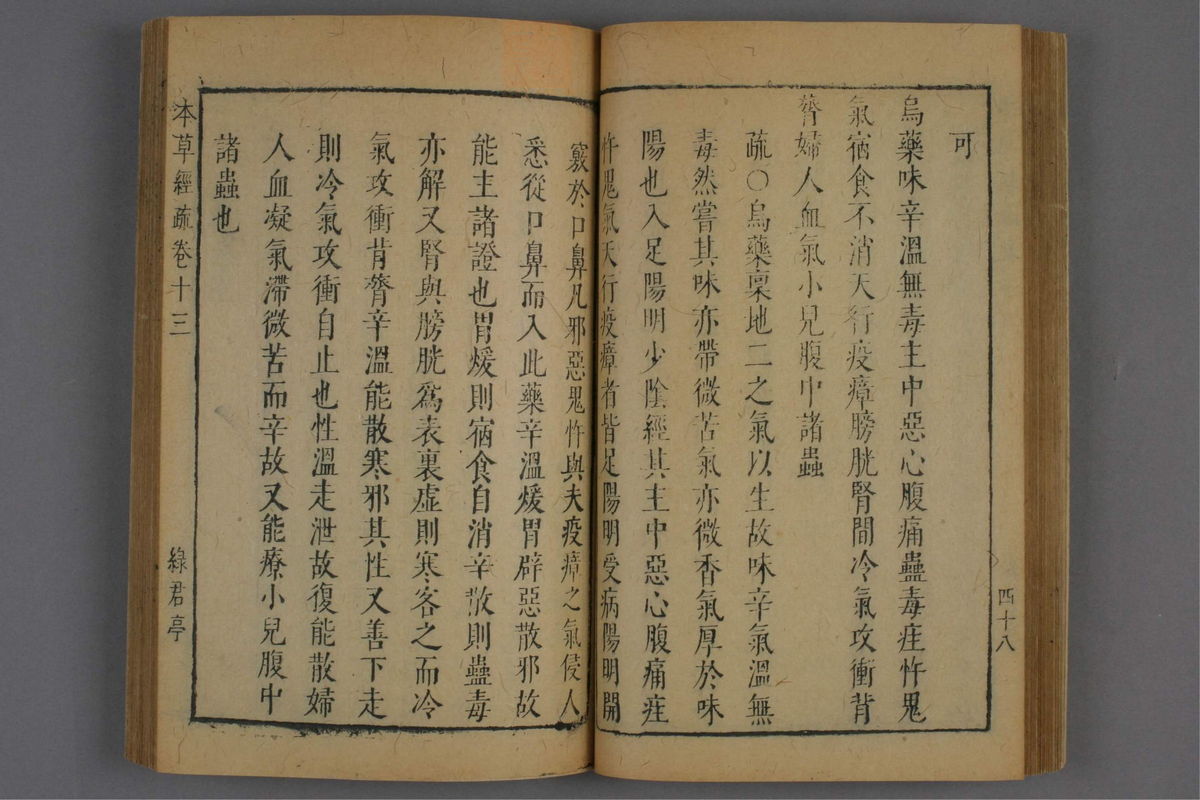 可
烏藥味辛溫無毒主中惡心腹痛蠱毒疰忤鬼
氣宿食不消天行疫瘴膀胱腎間冷氣攻衝背
膂婦人血氣小兒腹中諸蟲
疏〇烏藥稟地二之氣以生故味辛氣溫無
毒然嘗其味亦帶微苦氣亦微香氣厚於味
陽也入足陽明少陰經其主中惡心腹痛疰
忤鬼氣天行疫瘴者皆足陽明受病陽明開
竅於口鼻凡邪惡鬼忤與夫疫瘴之氣侵人
悉從口鼻而入此藥辛溫煖胃辟惡散邪故
能主諸證也胃煖則宿食自消辛散則蠱毒
亦解又腎與膀胱爲表裏虛則寒客之而冷
氣攻衝背膂辛溫能散寒邪其性又善下走
則冷氣攻衝自止也性溫走泄故復能散婦
人血凝氣滯微苦而辛故又能療小兒腹中
諸蟲也
四十八
本草經疏卷十三
綠君亭